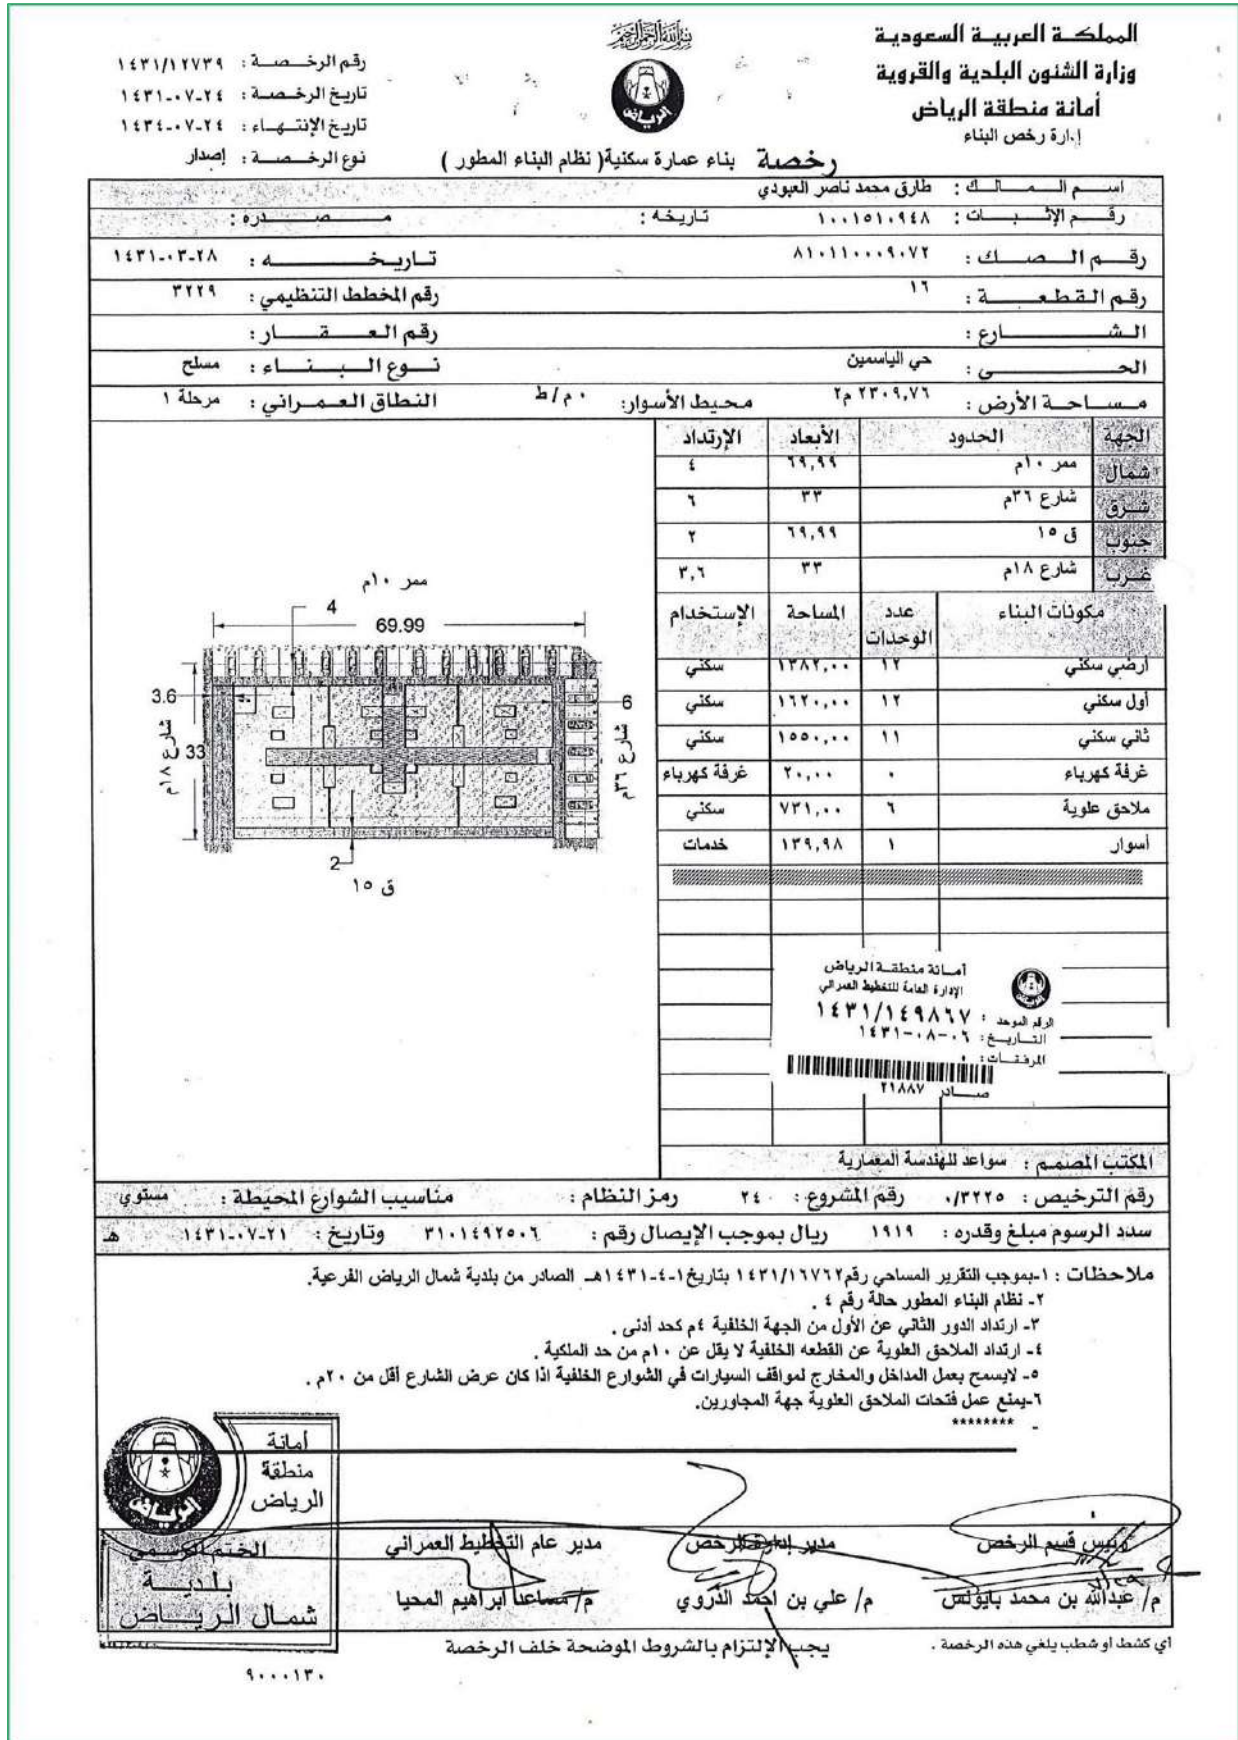 المملكة العربية السعودية
وزارة الشئون البلدية والقروية
أمانة منطقة الرياض
إدارة رخص البناء
بسم الله الرحمن الرحيم
الرياض
رقم الرخصة : ١٤٣١/١٢٧٣٩
تاريخ الرخصة : ١٤٣١-٠٧-٢٤
تاريخ الإنتهاء : ١٤٣٤-٠٧-٢٤
نوع الرخصة : إصدار
رخصة بناء عمارة سكنية( نظام البناء المطور )
اسم المالك : طارق محمد ناصر العبودي
رقم الإثبات : ١٠٠١٥١٠٩٤٨ تاريخه : مصدره :
رقم الصك : ٨١٠١١٠٠٠٩٠٧٢ تاريخه : ١٤٣١-٠٣-٢٨
رقم القطعة : ١٦ رقم المخطط التنظيمي : ٣٢٢٩
الشارع : رقم العقار :
الحي : حي الياسمين نوع البناء : مسلح
مساحة الأرض : ٢٣٠٩,٧٦ م٢ محيط الأسوار: ٠ م/ط النطاق العمراني : مرحلة ١
الجهة الحدود الأبعاد الإرتداد
شمال ممر ١٠م ٦٩,٩٩ ٤
شرق شارع ٣٦م ٣٣ ٦
جنوب ق ١٥ ٦٩,٩٩ ٢
غرب شارع ١٨م ٣٣ ٣,٦
مكونات البناء عدد الوحدات المساحة الإستخدام
أرضي سكني ١٢ ١٣٨٢,٠٠ سكني
أول سكني ١٢ ١٦٢٠,٠٠ سكني
ثاني سكني ١١ ١٥٥٠,٠٠ سكني
غرفة كهرباء ٠ ٢٠,٠٠ غرفة كهرباء
ملاحق علوية ٦ ٧٣١,٠٠ سكني
أسوار ١ ١٣٩,٩٨ خدمات
ممر ١٠م
4
69.99
3.6
6
شارع ١٨م
33
شارع ٣٦م
2
ق ١٥
أمانة منطقة الرياض
الإدارة العامة للتخطيط العمراني
الرقم الموحد : ١٤٣١/١٤٩٨٦٧
التاريخ : ١٤٣١-٠٨-٠٦
المرفقات : ٠
صادر ٢١٨٨٧
المكتب المصمم : سواعد للهندسة المعمارية
رقم الترخيص : ٠/٣٢٢٥ رقم المشروع : ٢٤ رمز النظام : مناسيب الشوارع المحيطة : مستوي
سدد الرسوم مبلغ وقدره : ١٩١٩ ريال بموجب الإيصال رقم : ٣١٠١٤٩٢٥٠٦ وتاريخ : ١٤٣١-٠٧-٢١ هـ
ملاحظات : ١-بموجب التقرير المساحي رقم١٤٣١/١٦٧٦٢ بتاريخ١-٤-١٤٣١هـ الصادر من بلدية شمال الرياض الفرعية.
٢- نظام البناء المطور حالة رقم ٤ .
٣- ارتداد الدور الثاني عن الأول من الجهة الخلفية ٤م كحد أدنى .
٤- ارتداد الملاحق العلوية عن القطعه الخلفية لا يقل عن ١٠م من حد الملكية .
٥- لايسمح بعمل المداخل والمخارج لمواقف السيارات في الشوارع الخلفية اذا كان عرض الشارع أقل من ٢٠م .
٦-يمنع عمل فتحات الملاحق العلوية جهة المجاورين.
- ********
أمانة
منطقة
الرياض
الرياض
الختم الرسمي
بلدية
شمال الرياض
رئيس قسم الرخص مدير إدارة الرخص مدير عام التخطيط العمراني
م/ عبدالله بن محمد بايونس م/ علي بن احمد الذروي م/ مساعد ابراهيم المحيا
أي كشط أو شطب يلغي هذه الرخصة . يجب الإلتزام بالشروط الموضحة خلف الرخصة
٩٠٠٠١٣٠